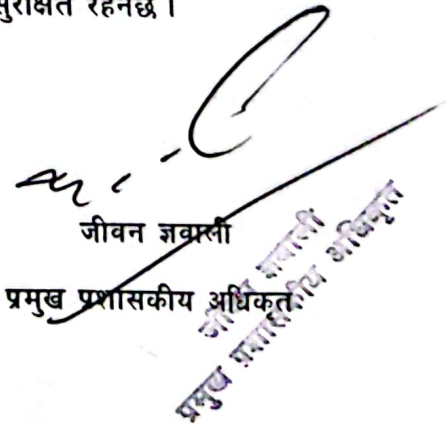 सुरक्षित रहनेछ ।
जीवन ज्ञवाली
प्रमुख प्रशासकीय अधिकृत
जीवन ज्ञवाली
प्रमुख प्रशासकीय अधिकृत